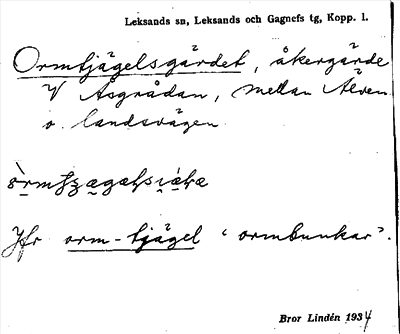 Leksands sn, Leksands och Gagnefs tg, Kopp. l.
Ormtjägelsgärdet, åkergärde
V Åsgrådan, mellan Älven
o. landsvägen
Jfr orm-tjägel ‘ormbunkar’.
Bror Lindén 1934